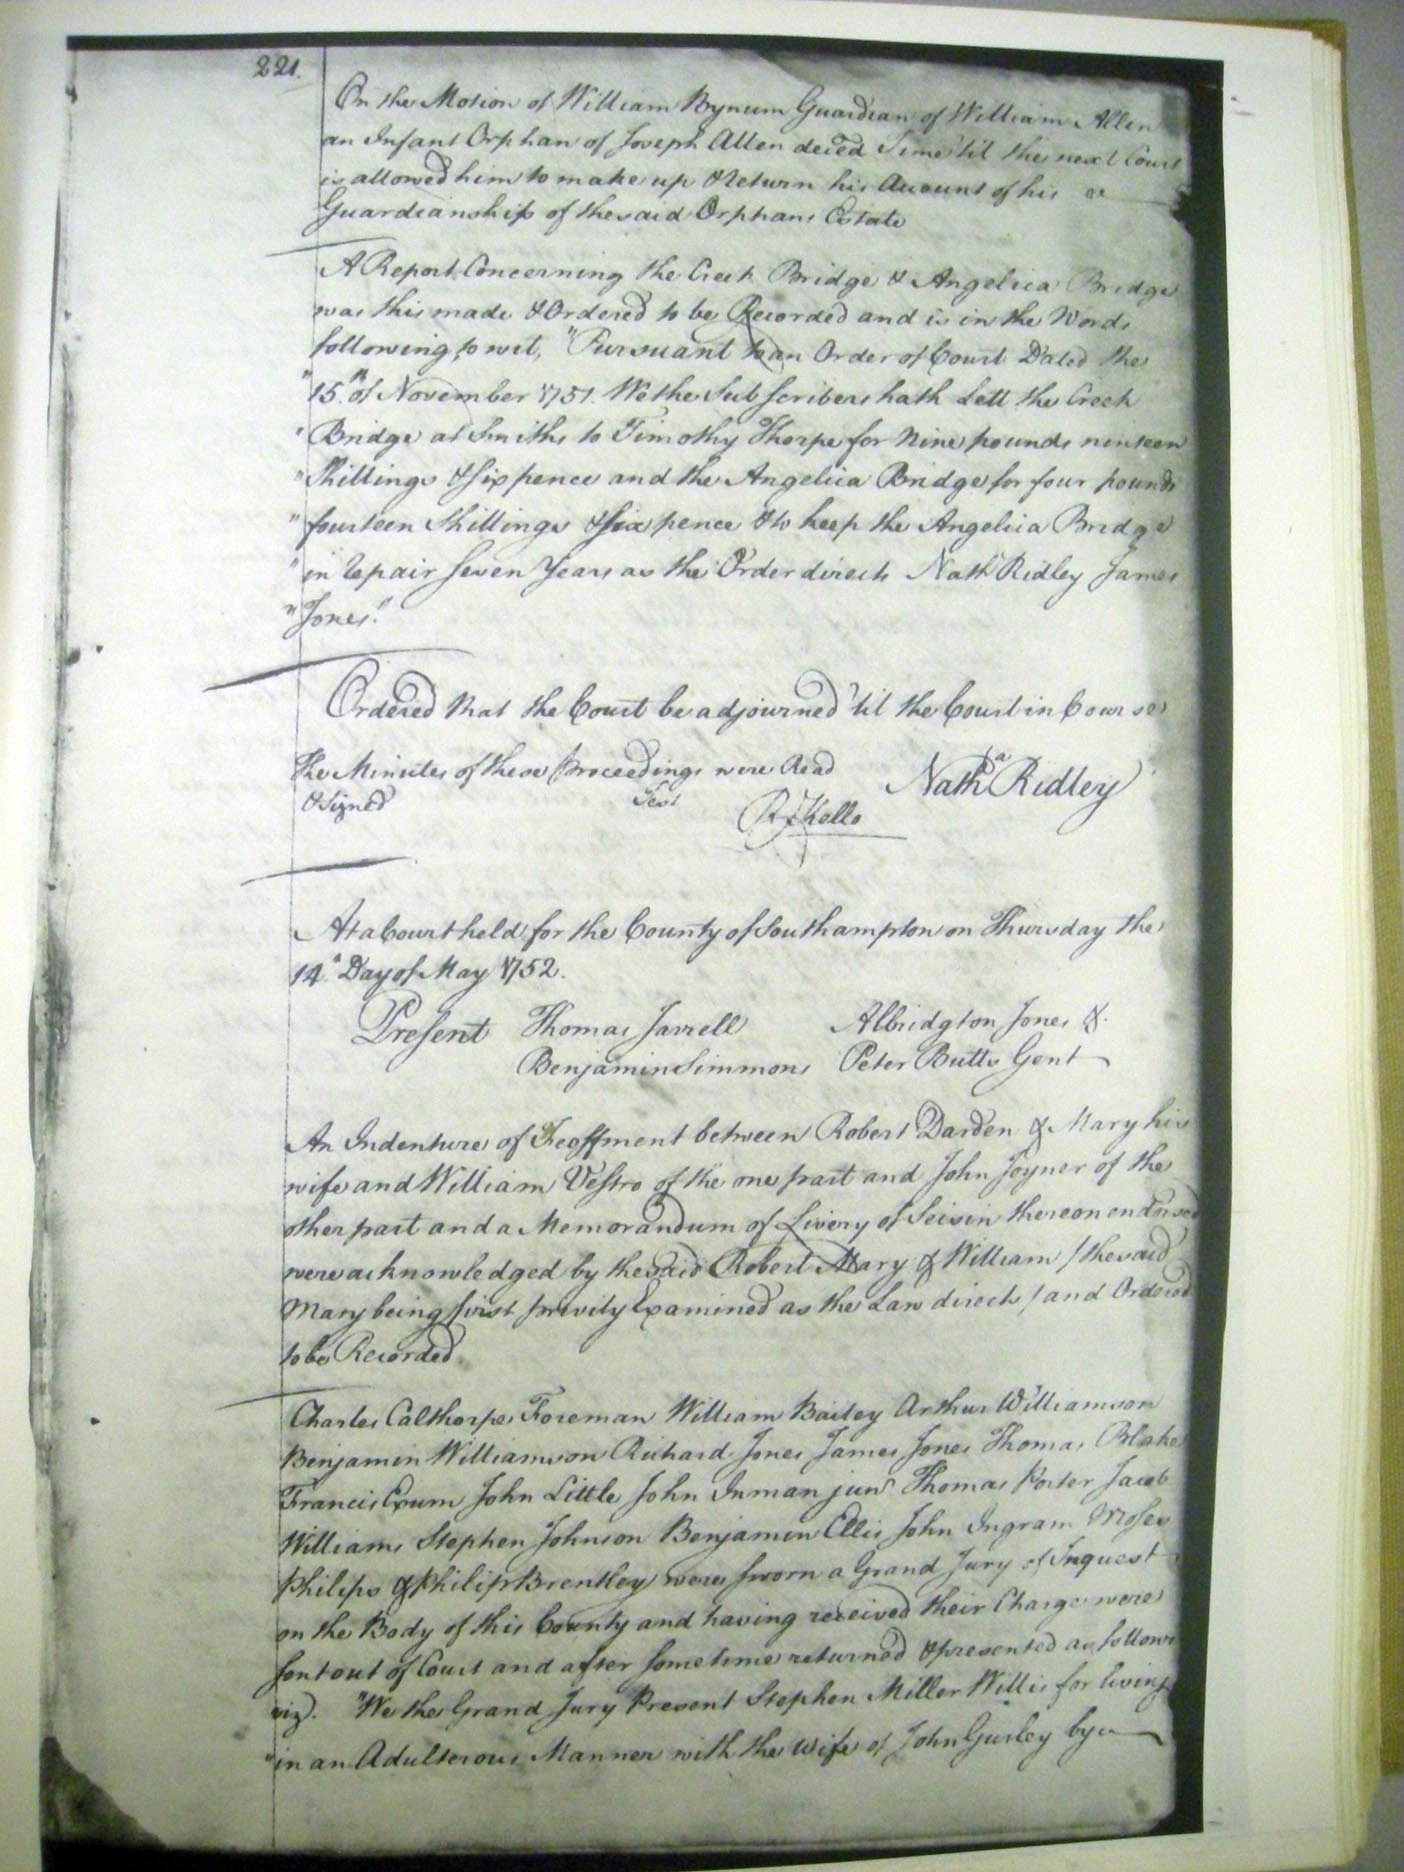 221.
On the Motion of William Bynum Guardian of William Allen
an Infant Orphan of Joseph Allen deced Time 'til the next Court
is allowed him to make up & Return his Account of his
Guardianship of the said Orphans Estate
A Report Concerning the Creek Bridge & Angelica Bridge
was this made & Ordered to be Recorded and is in the Words
following, to wit, "Pursuant to an Order of Court Dated the
"15th of November 1751. We the Subscribers hath Lett the Creek
" Bridge at Smiths to Timothy Thorpe for Nine pounds ninteen
" Shillings & sixpence and the Angelica Bridge for four pounds
" fourteen Shillings & sixpence & to keep the Angelica Bridge
" in Repair Seven Years as the Order directs Nathl Ridley James
" Jones."
Ordered that the Court be adjourned 'til the Court in Course
The Minutes of these Proceedings were Read
& Signed Test Nathl Ridley
Rd Kello
At a Court held for the County of Southampton on Thursday the
14th Day of May 1752.
Present Thomas Jarrell Albridgton Jones &
Benjamin Simmons Peter Butts Gent
An Indenture of Feoffment between Robert Darden & Mary his
wife and William Vestro of the one part and John Joyner of the
other part and a Memorandum of Livery of Seisin thereon endorsed
were acknowledged by the said Robert Mary & William / the said
Mary being first privily Examined as the Law directs / and Ordered
to be Recorded
Charles Calthorpe Foreman William Bailey Arthur Williamson
Benjamin Williamson Richard Jones James Jones Thomas Blake
Francis Exum John Little John Inman junr Thomas Porter Jacob
Williams Stephen Johnson Benjamin Ellis John Ingram Moses
Philips & Philip Brentley were sworn a Grand Jury of Inquest
on the Body of this County and having received their Charge were
sent out of Court and after sometime returned & presented as follows
viz). "We the Grand Jury Present Stephen Miller Willis for living
"in an Adulterous Manner with the Wife of John Gurley by